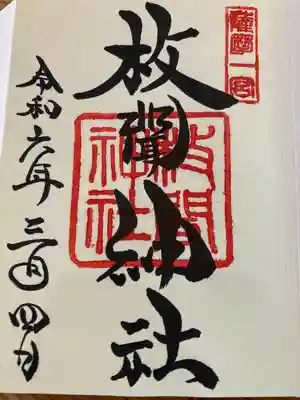 枚聞神社
枚聞
神社
令和六年三月四日